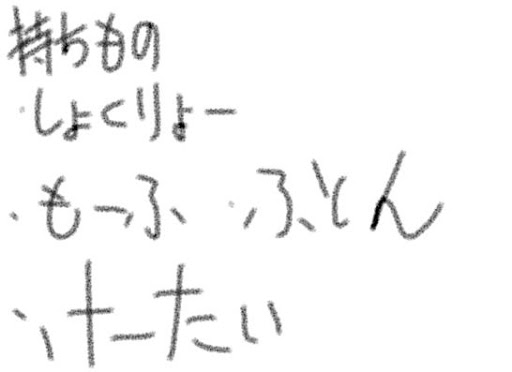 持ちもの
・しょくりょー
・もーふ ・ふとん
・けーたい